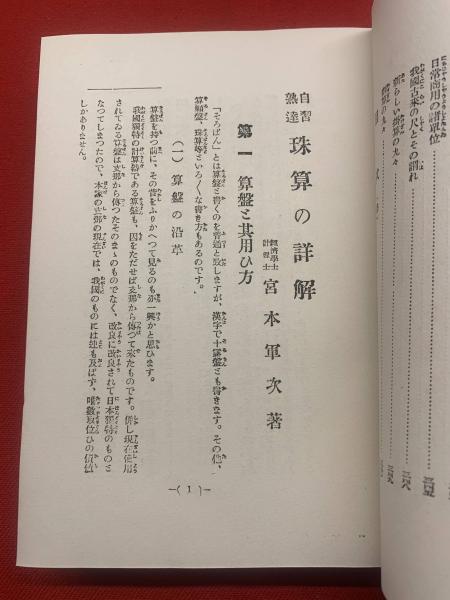 日常商用の諸單位
我國古来の尺とその謂れ
新らしい掛算の九々
自習
熟達
珠算の詳解
經濟學士
計理士
宮本軍次著
第一 算盤と其用ひ方
「そろばん」とは算盤と書くのを普通と致しますが、漢字で十露盤とも書きます。その他、
算顆盤、珠算等といろ〱な書き方もあるのです。
(一) 算盤の沿革
算盤を持つ前に、その昔をふりかへつて見るのも亦一興かと思ひます。
我國獨特の計算器である算盤も、因をたゞせば支那から傳つて來たものです。併し現在使用
されてゐる算盤は支那から傳つたそのまゝのものでなく、改良に改良されて日本獨特のものと
なつてしまつたので、本家の支那の現在では、我國のものには迚も及ばず、唯數取位ひの價値
しかありません。
—( 1 )—